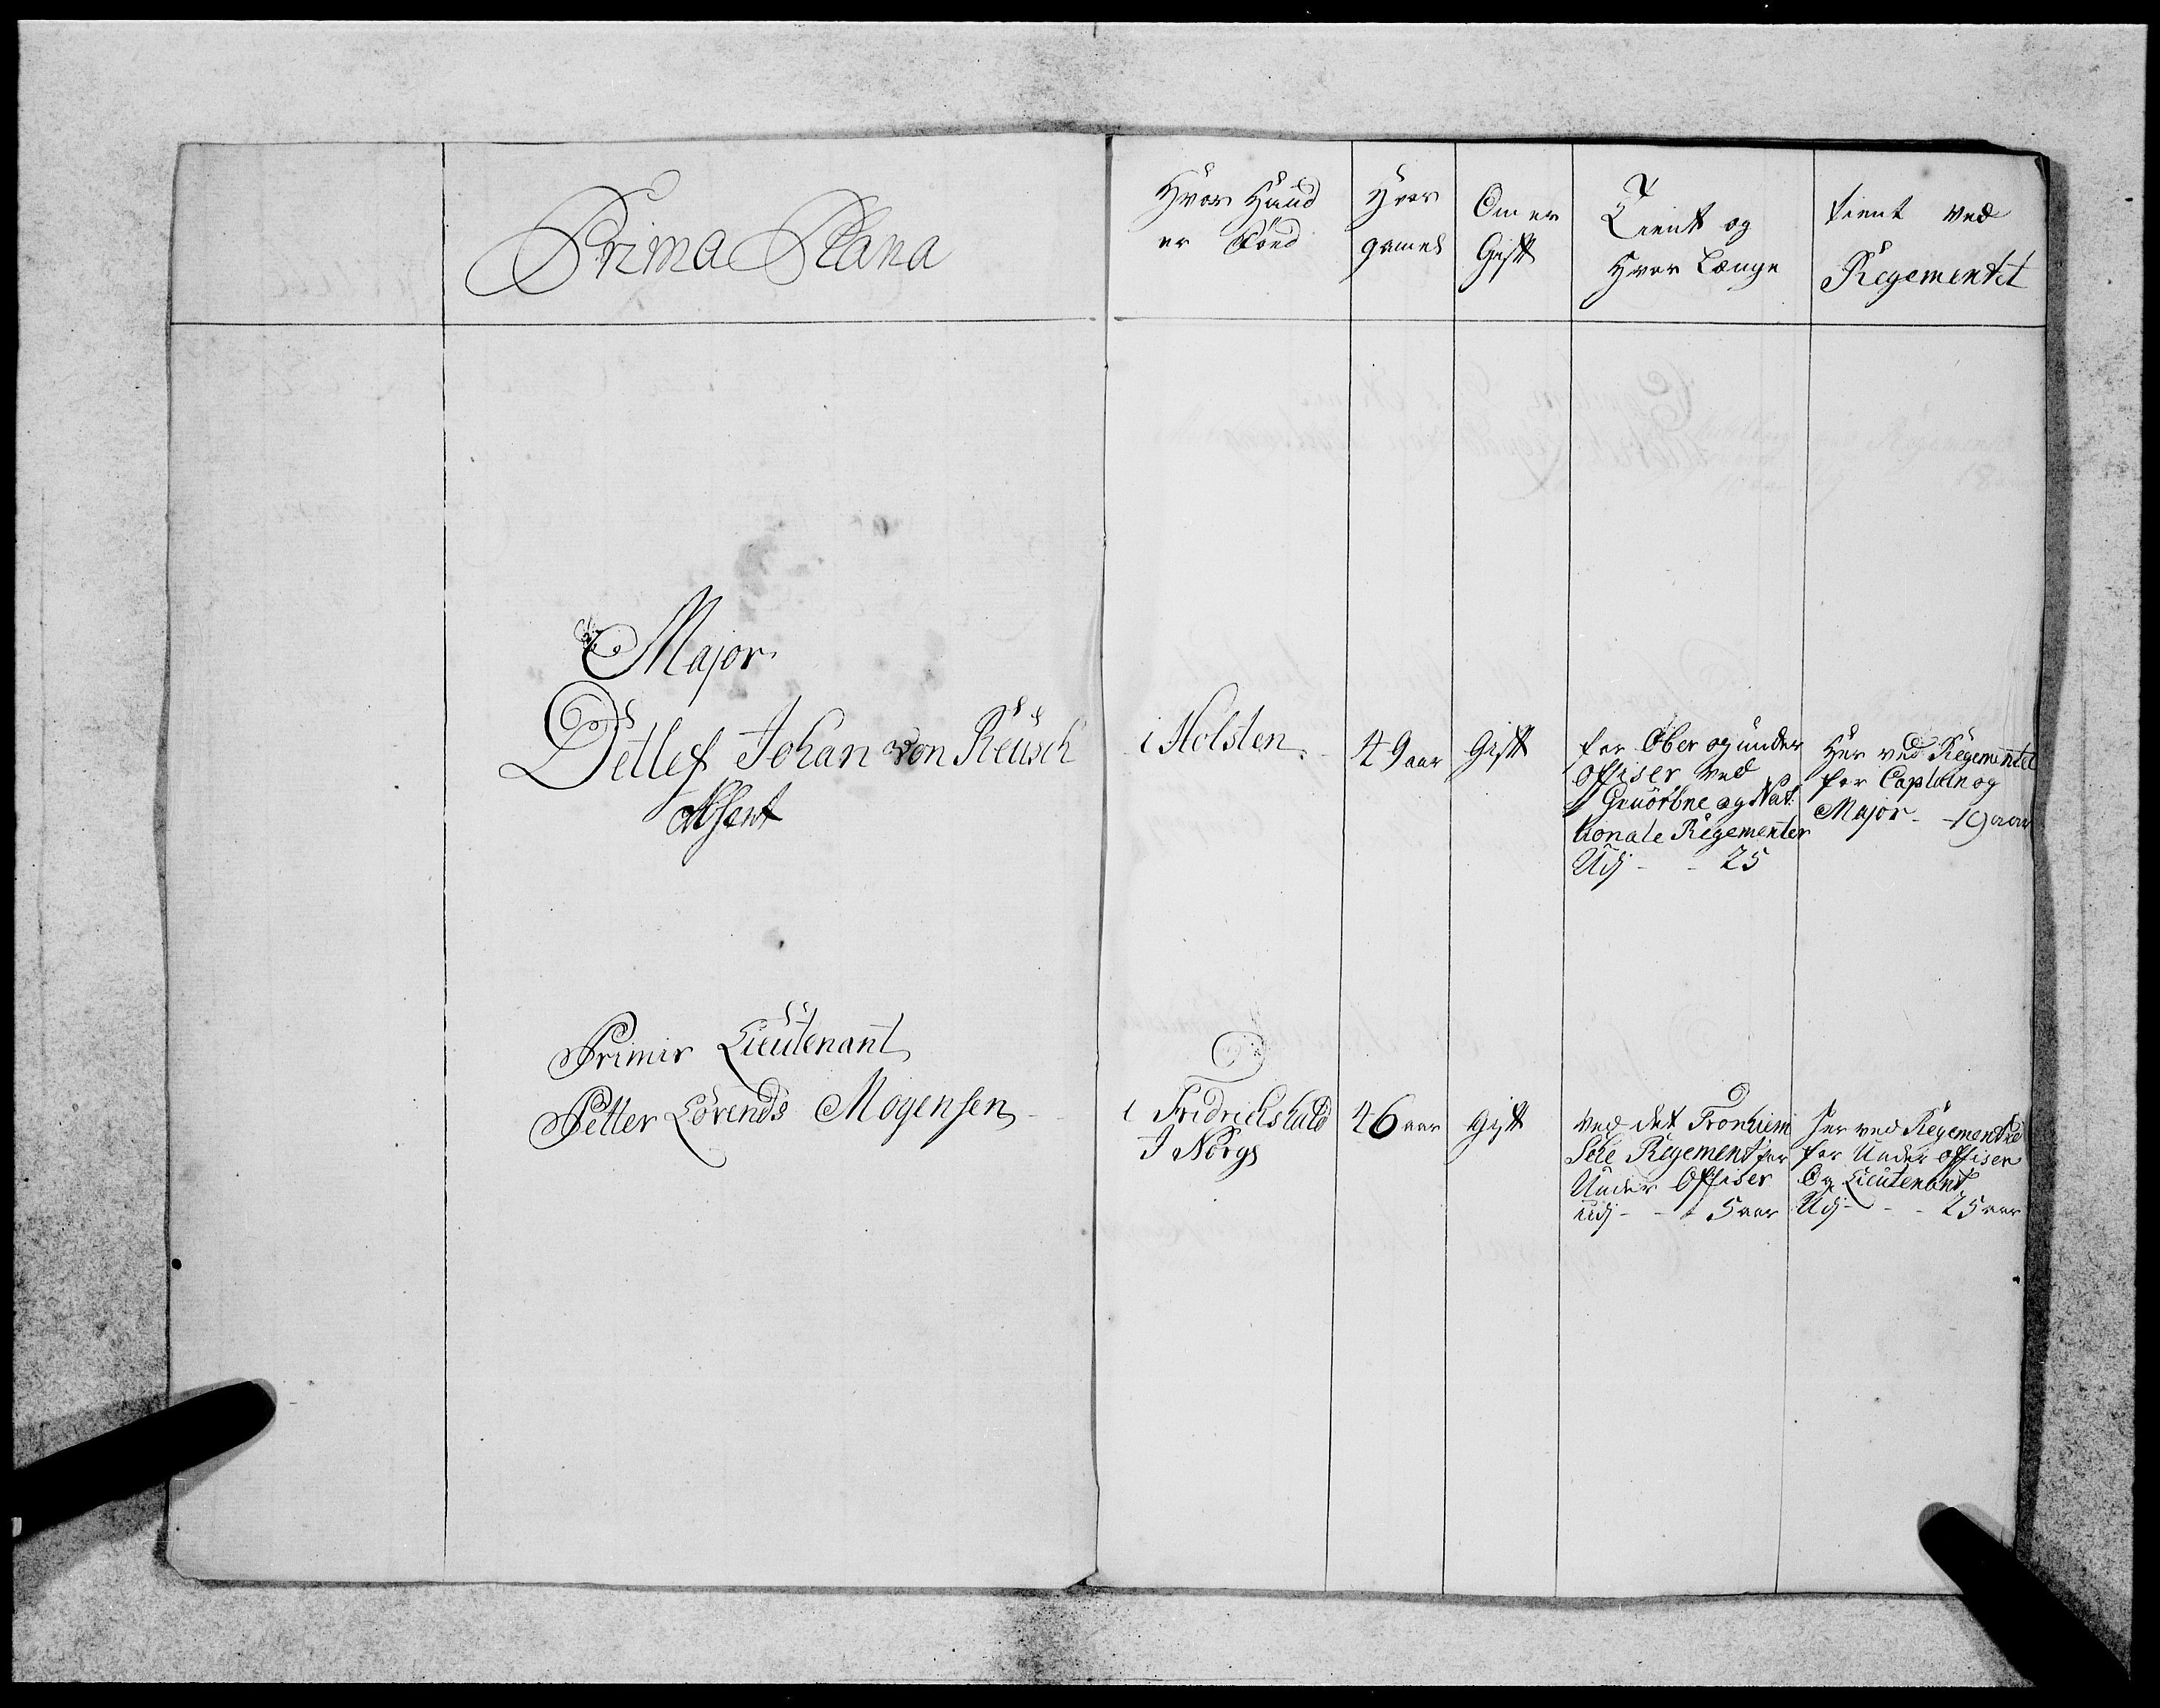 Prima Plana
Hvor Hand
er Föed
Hvor
gamel
Om er
Gift
Tient og
Hvor Længe
tient ved
Regementet
Major
Detlef Johan von Reusch
Absent
i Holsten
49 aar
Gift
for Ober og under
Offiser ved
Geuorbne og Nat:
tionale Regementer
Udj - - 25
Her ved Regementet
for Captein og
Major - 19 aar
Primir Lieutenant
Petter Lorends Mogensen
i Fridrichshald
I Norge
46 aar
Gift
ved det Tronhiem
Sche Regement for
Under Offiser
Udj - - 5 aar
her ved Regementet
for Under offiser
Og Lieutenant
Udj - - 25 aar